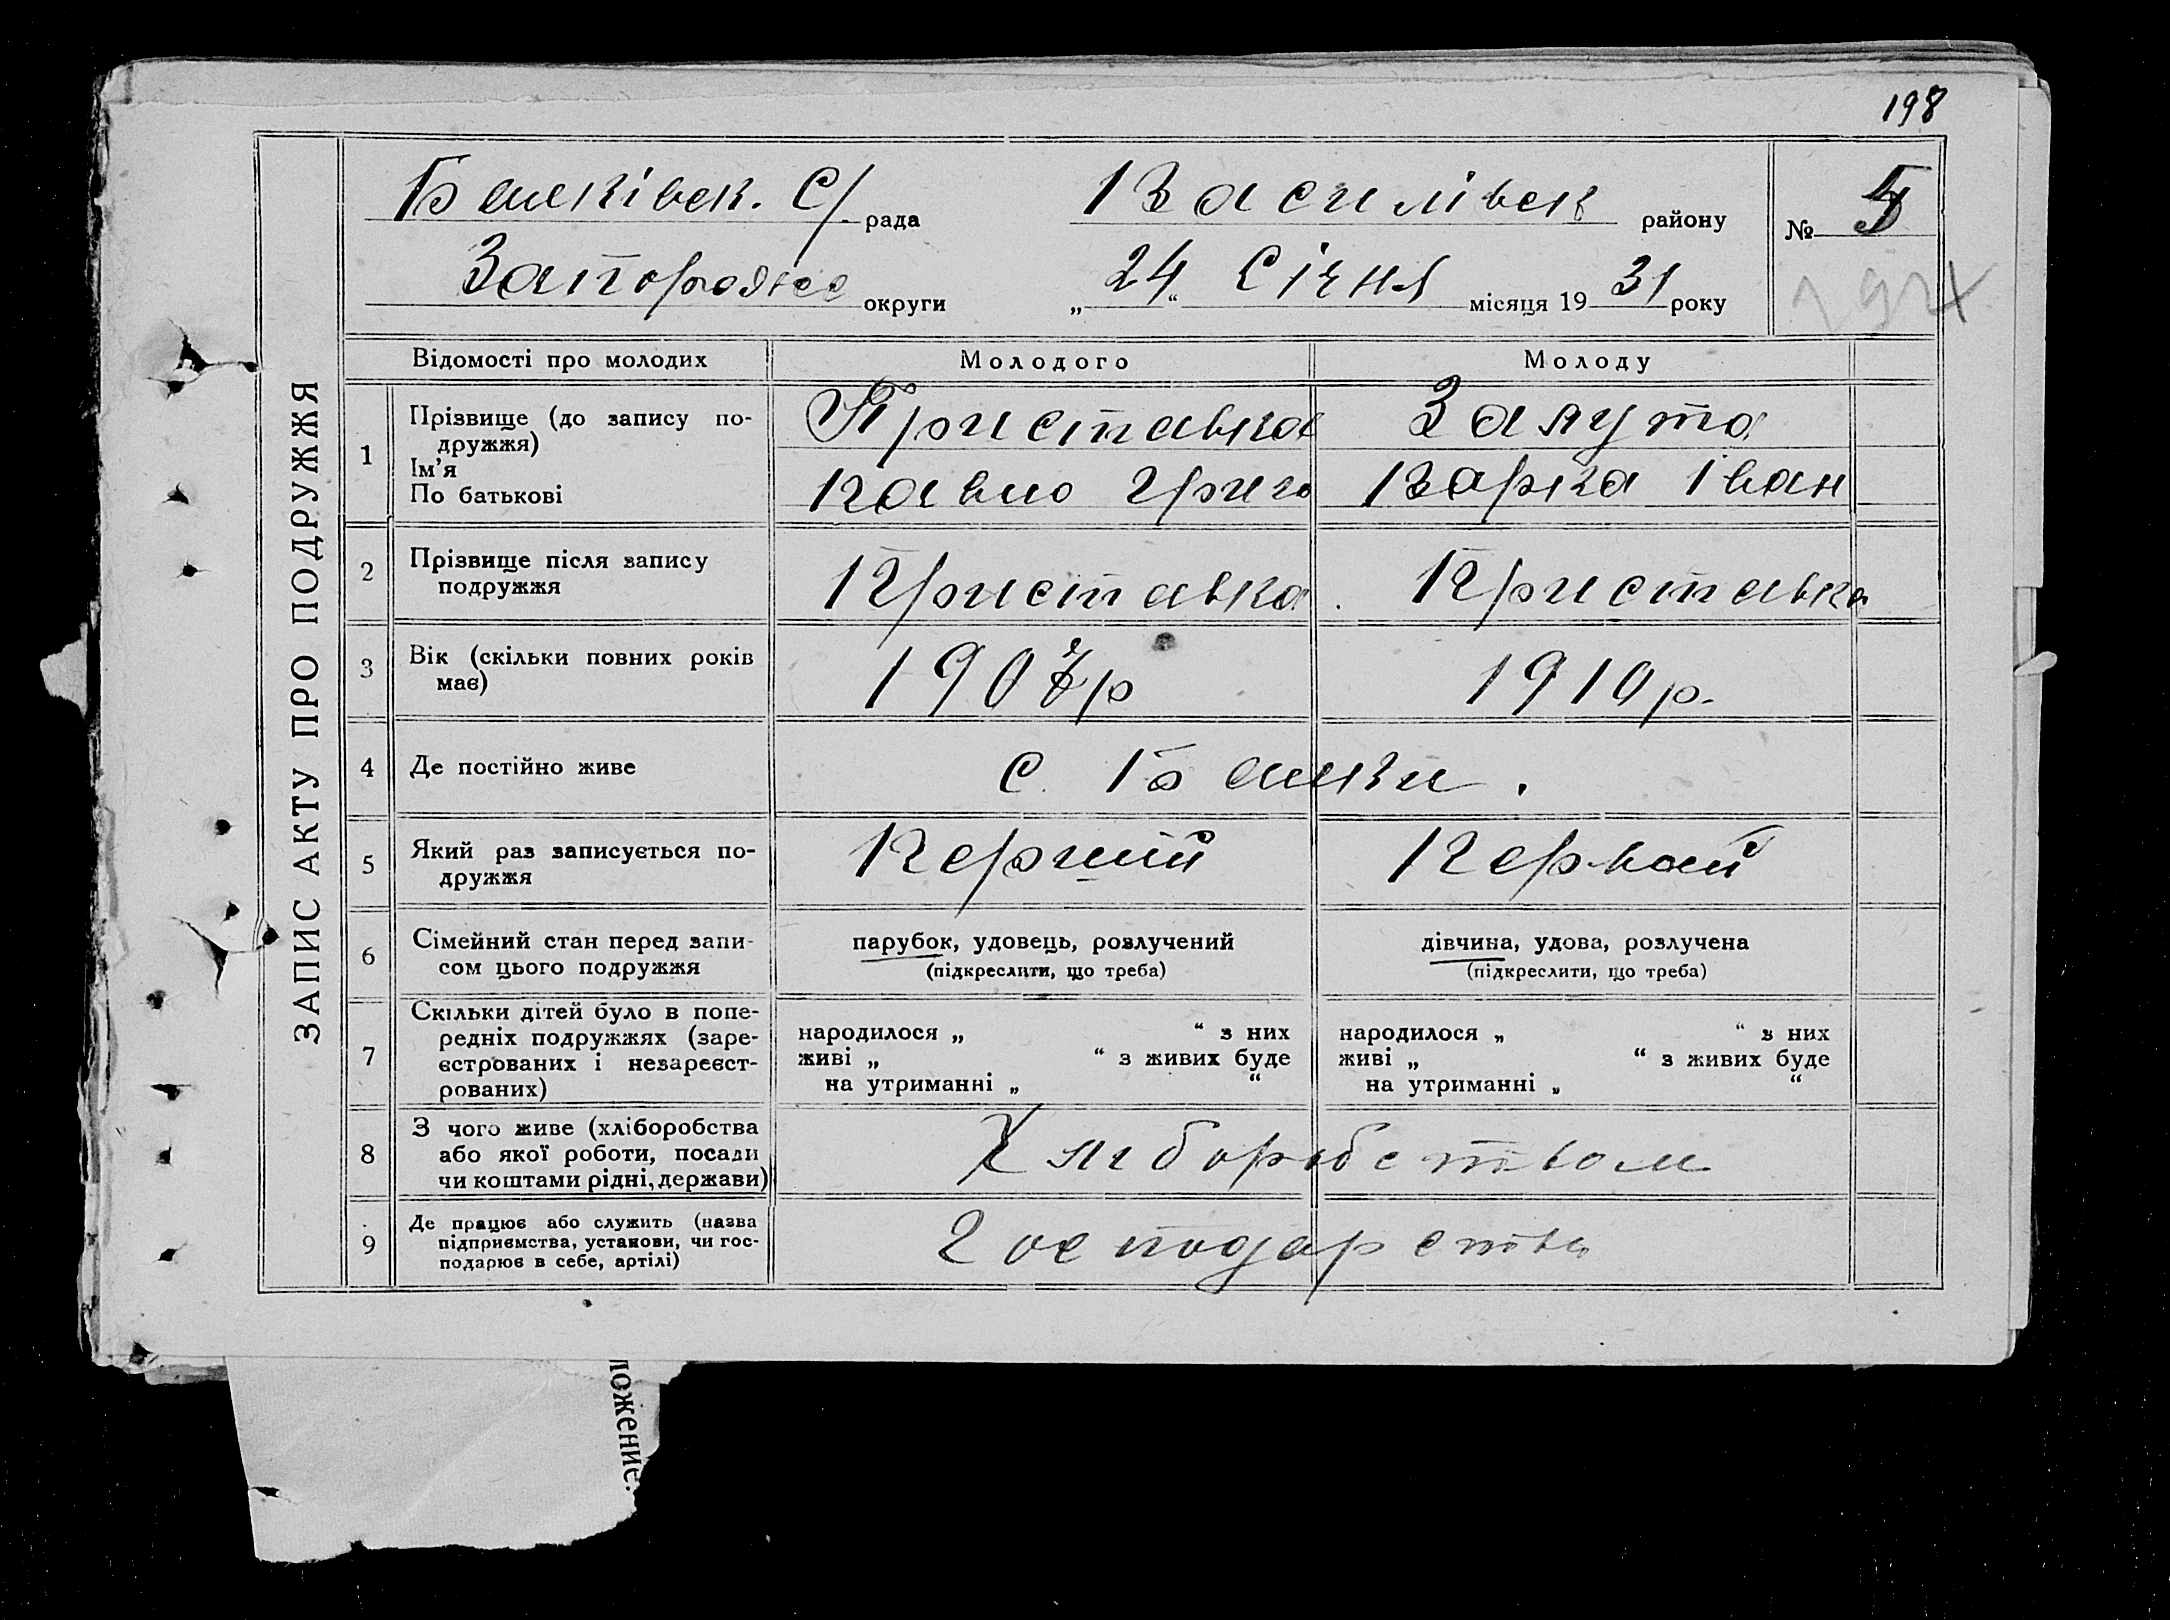 198
ЗАПИС АКТУ ПРО ПОДРУЖЖЯ
Балківськ. С/рада Василівськ району № 5
Запорожжс округи „24“ Січня місяця 1931 року
Відомості про молодих Молодого Молоду
1 Прізвище (до запису по-
дружжя) Приставка Залута
Ім’я
По батькові Павло Григо Варка Іван
2 Прізвище після запису
подружжя Приставка Приставка
3 Вік (скільки повних років
має) 1907р 1910р.
4 Де постійно живе с. Балки.
5 Який раз записується по-
дружжя Перший Первый
6 Сімейний стан перед запи-
сом цього подружжя парубок, удовець, розлучений дівчина, удова, розлучена
(підкреслити, що треба) (підкреслити, що треба)
7 Скільки дітей було в попе-
редніх подружжях (заре-
єстрованих і незареєст-
рованих) народилося „ “ з них народилося „ “ з них
живі „ “ з живих буде живі „ “ з живих буде
на утриманні „ “ на утриманні „ “
8 З чого живе (хліборобства
або якої роботи, посади
чи коштами рідні, держави) Хліборобством
9 Де працює або служить (назва
підприємства, установи, чи гос-
подарює в себе, артілі) Господарство
ложение.